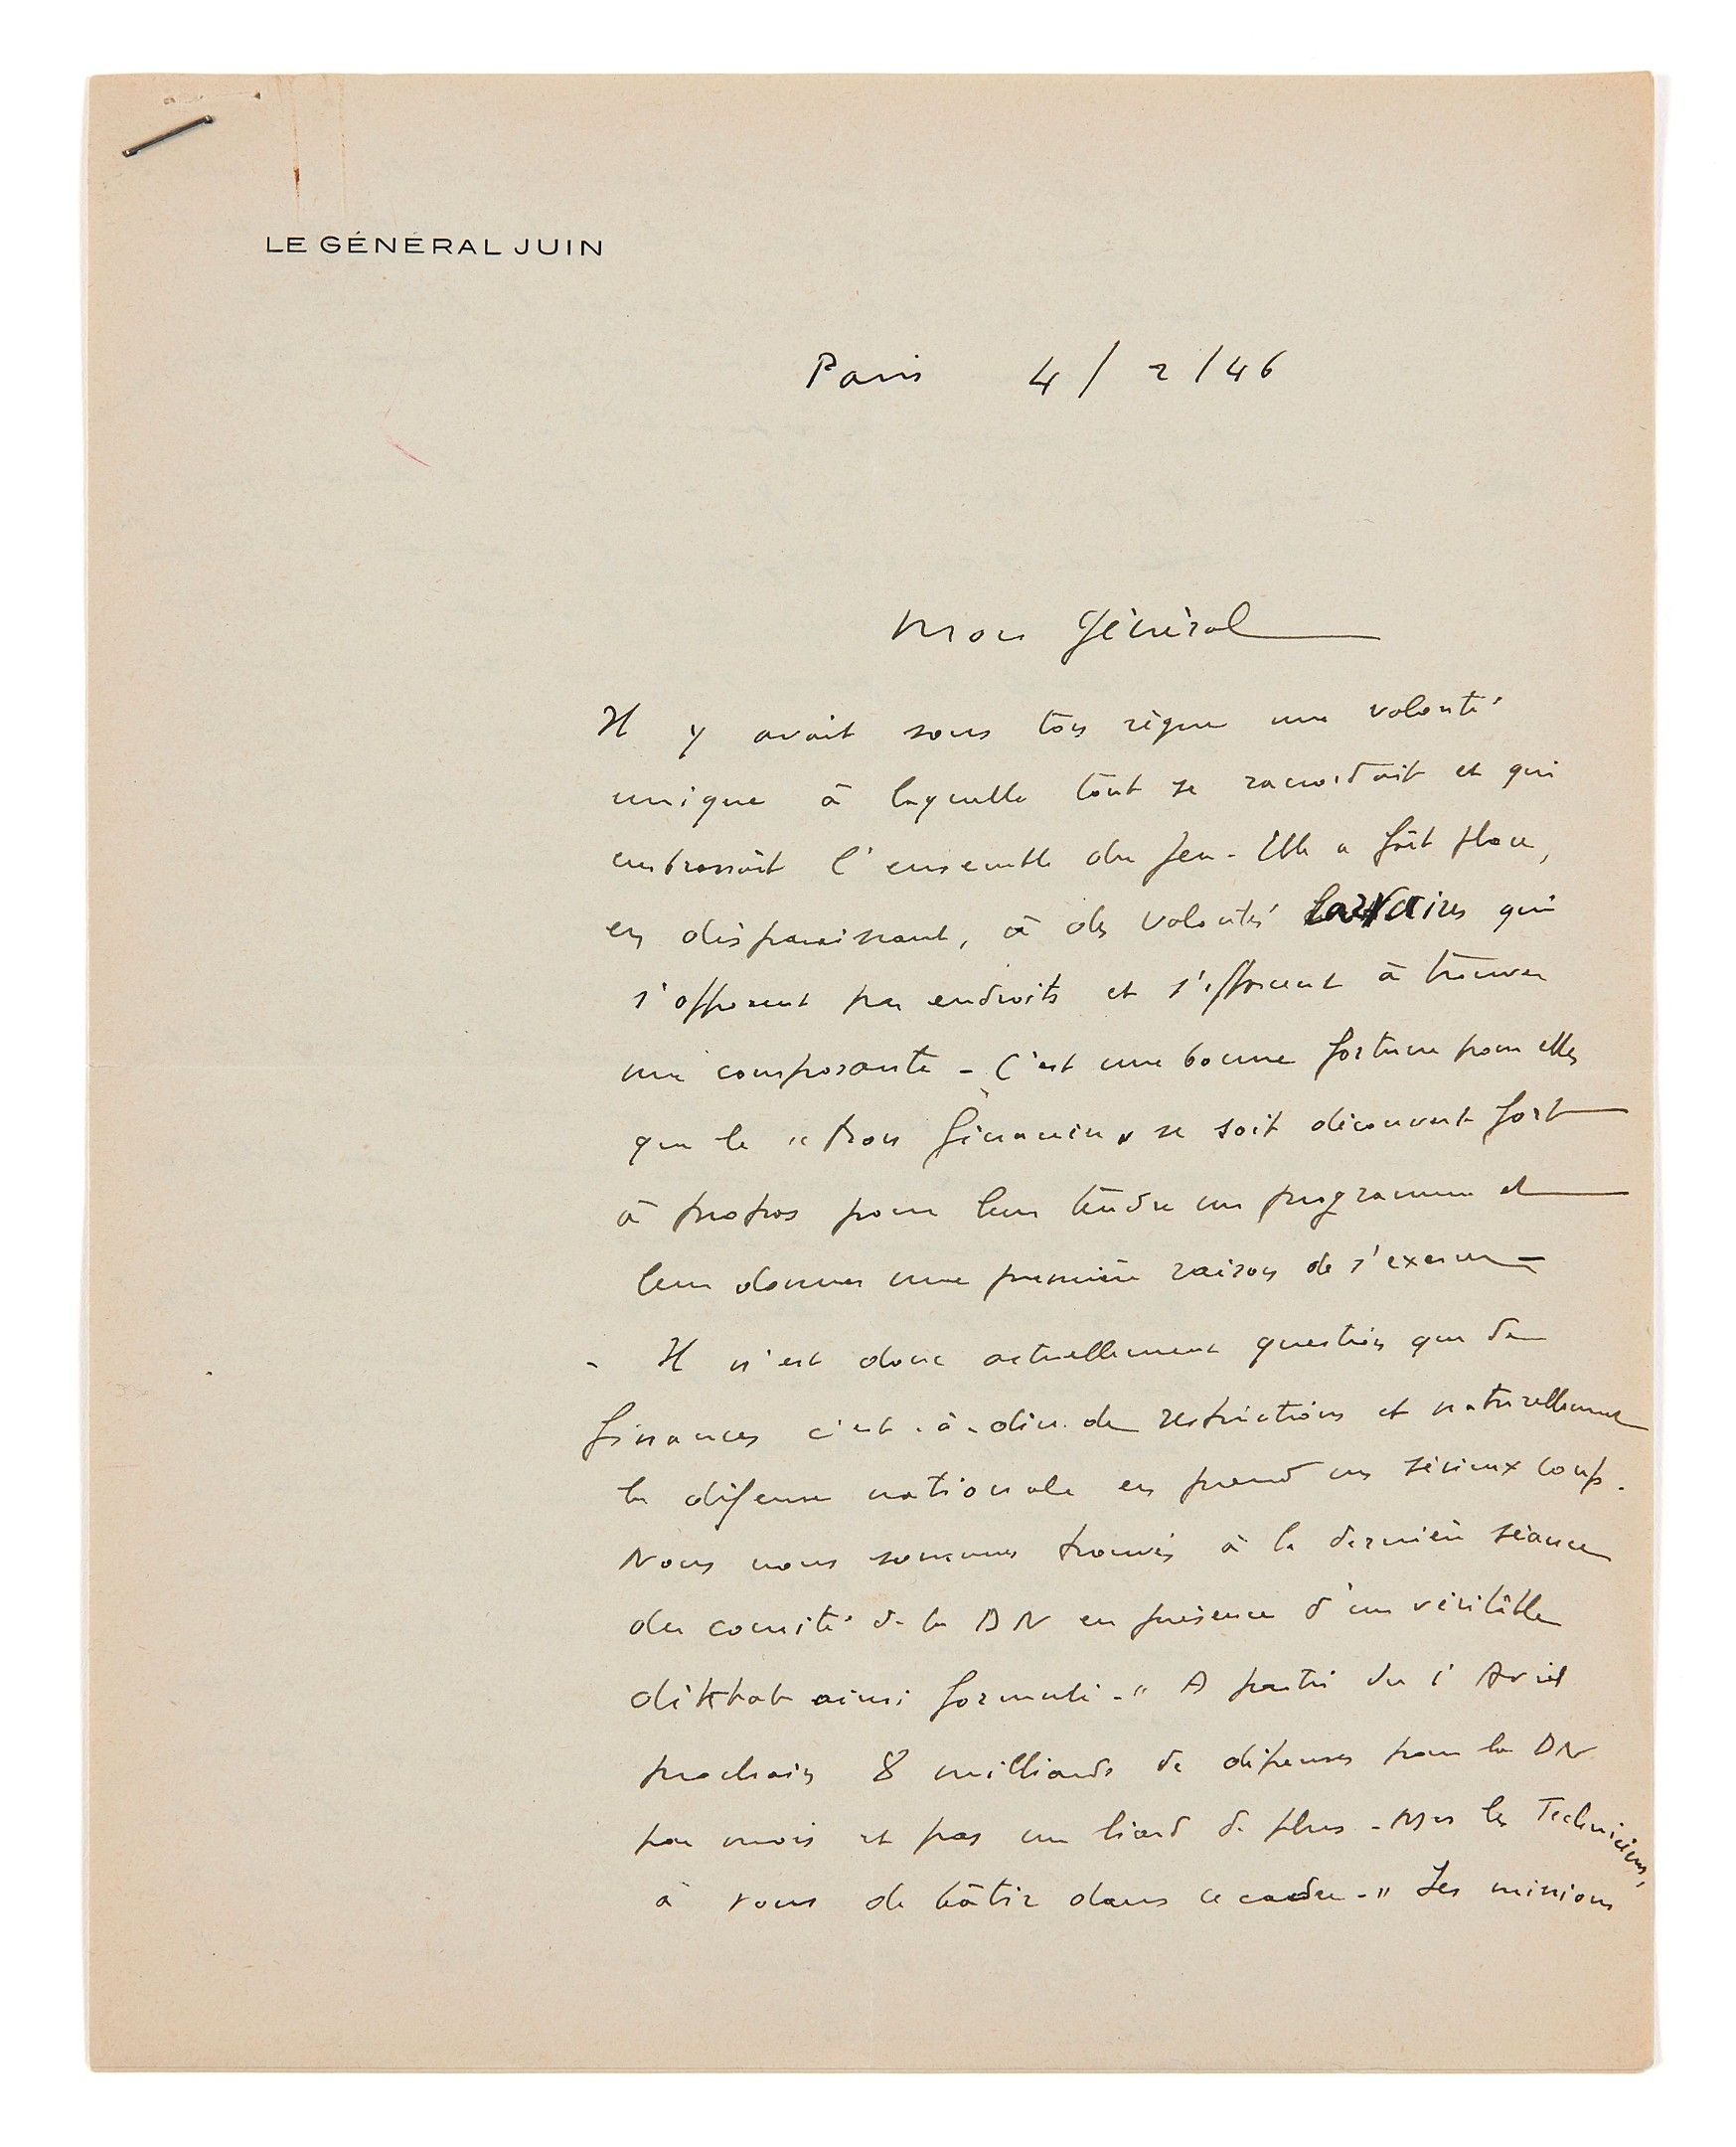 LE GÉNÉRAL JUIN
Paris 4/2/46
Mon Général
Il y avait sous ton règne une volonté
unique à laquelle tout se racordait et qui
embrassait l'ensemble du jeu - Elle a fait place,
en disparaissant, à des volontés larvaires qui
s'opposent par endroits et s'efforcent à trouver
une composante - C'est une bonne fortune pour elles
que le "trou financier" se soit découvert fort
à propos pour leur tendre un programme et
leur donner une première raison de s'exercer -
- Il n'est donc actuellement question que de
finances c'est-à-dire de restrictions et naturellement
la défense nationale en prend un sérieux coup.
Nous nous sommes trouvés à la dernière séance
du comité de la DN en présence d'un véritable
diktat ainsi formulé - " A partir du 1 Avril
prochain 8 milliards de dépenses pour la DN
par mois et pas un liard de plus - les Techniciens,
à vous de bâtir dans ce cadre - " Les missions